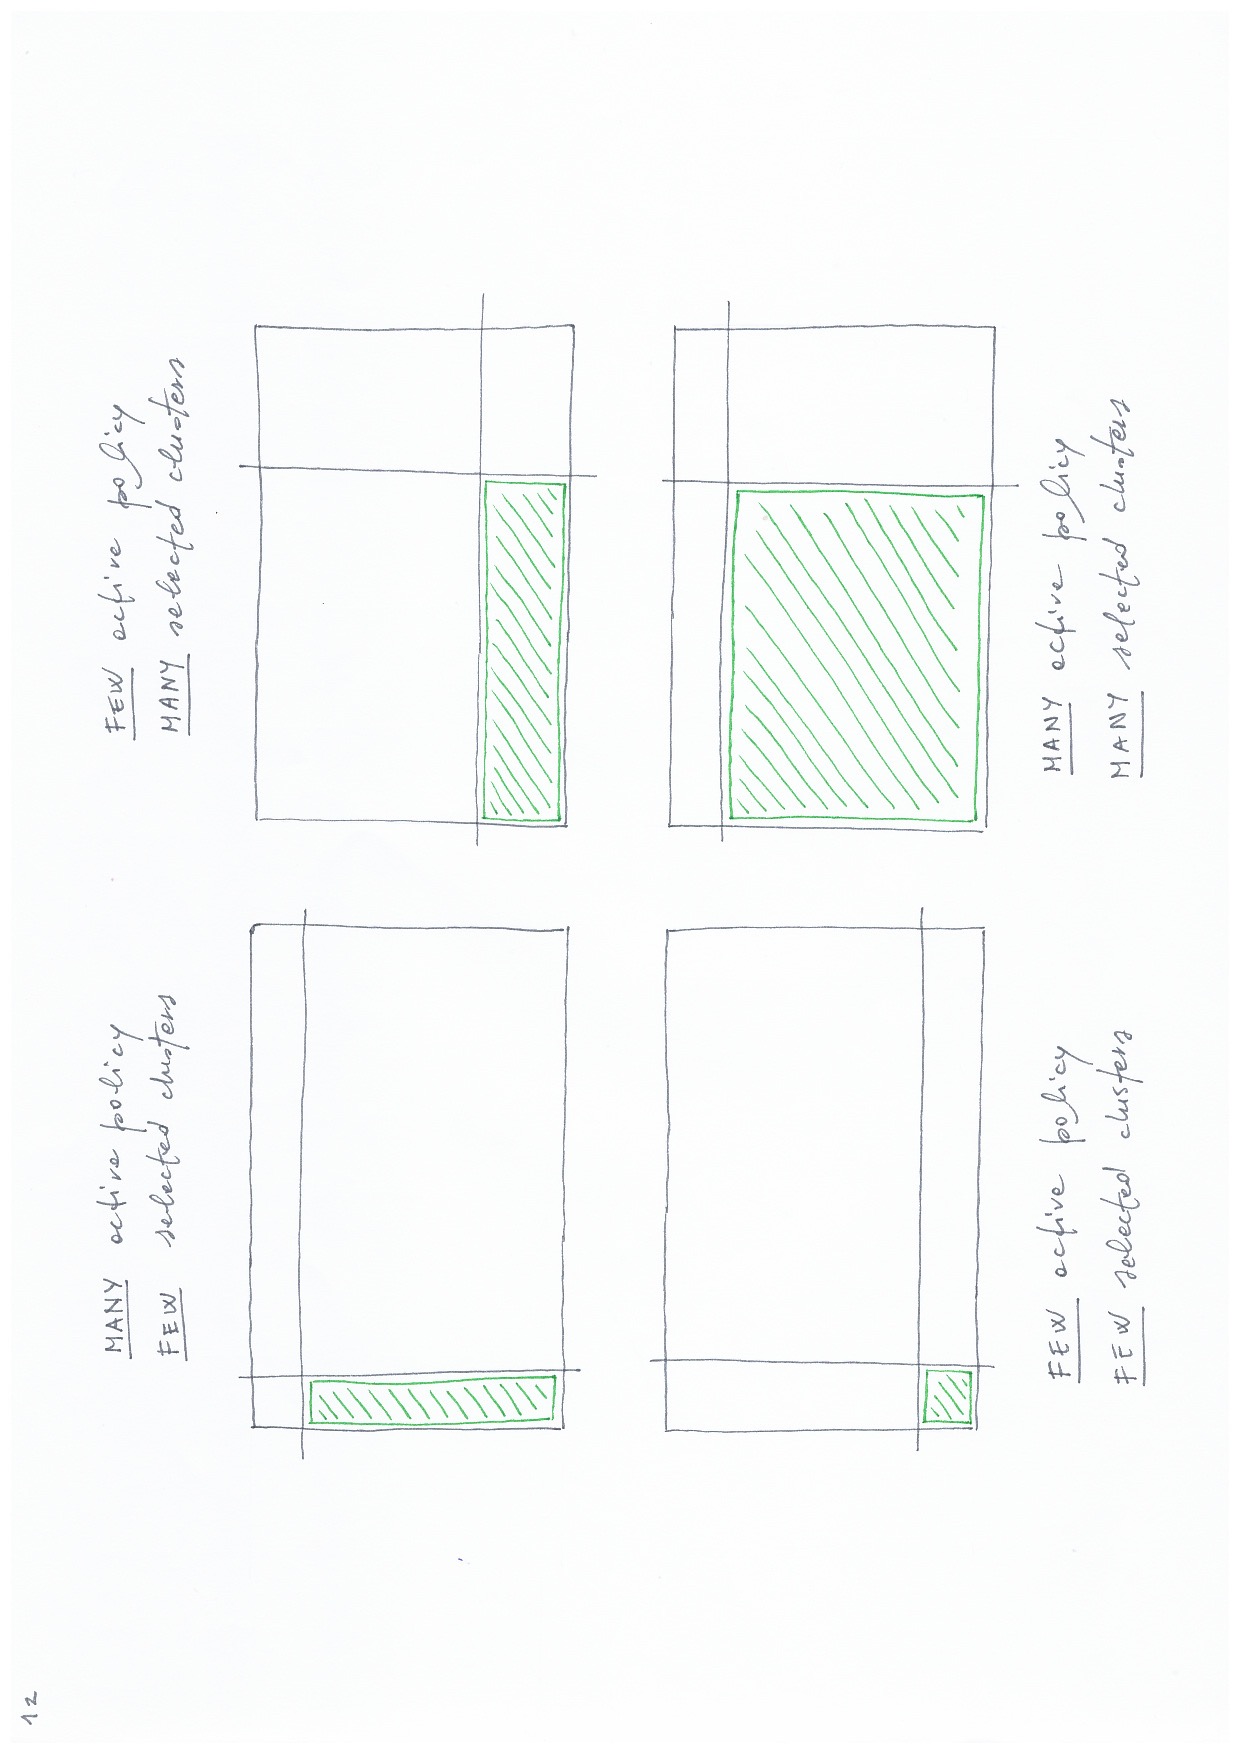 12
MANY active policy
FEW selected clusters
FEW active policy
MANY selected clusters
FEW active policy
FEW selected clusters
MANY active policy
MANY selected clusters